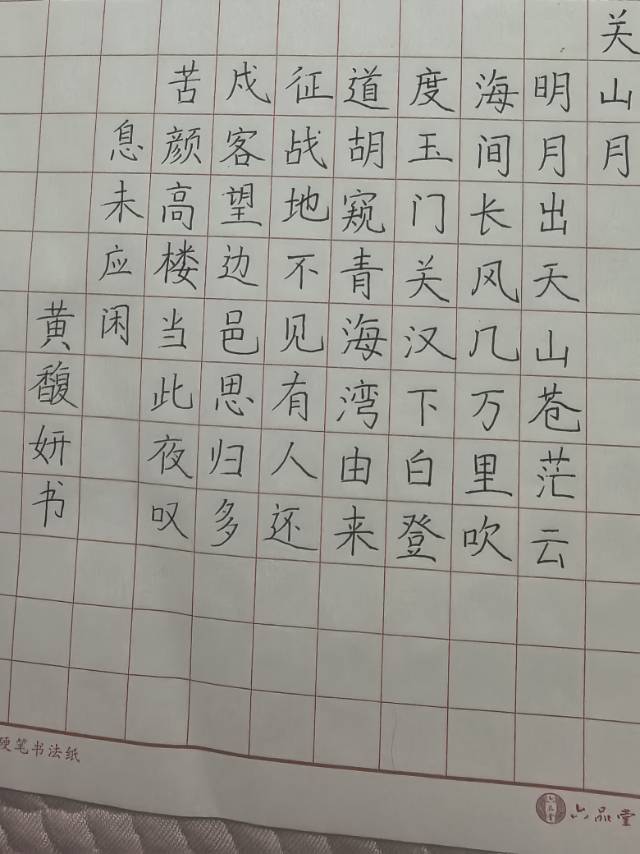 关山月
明月出天山苍茫云
海间长风几万里吹
度玉门关汉下白登
道胡窥青海湾由来
征战地不见有人还
戍客望边邑思归多
苦颜高楼当此夜叹
息未应闲
黄馥妍书
硬笔书法纸
六品堂